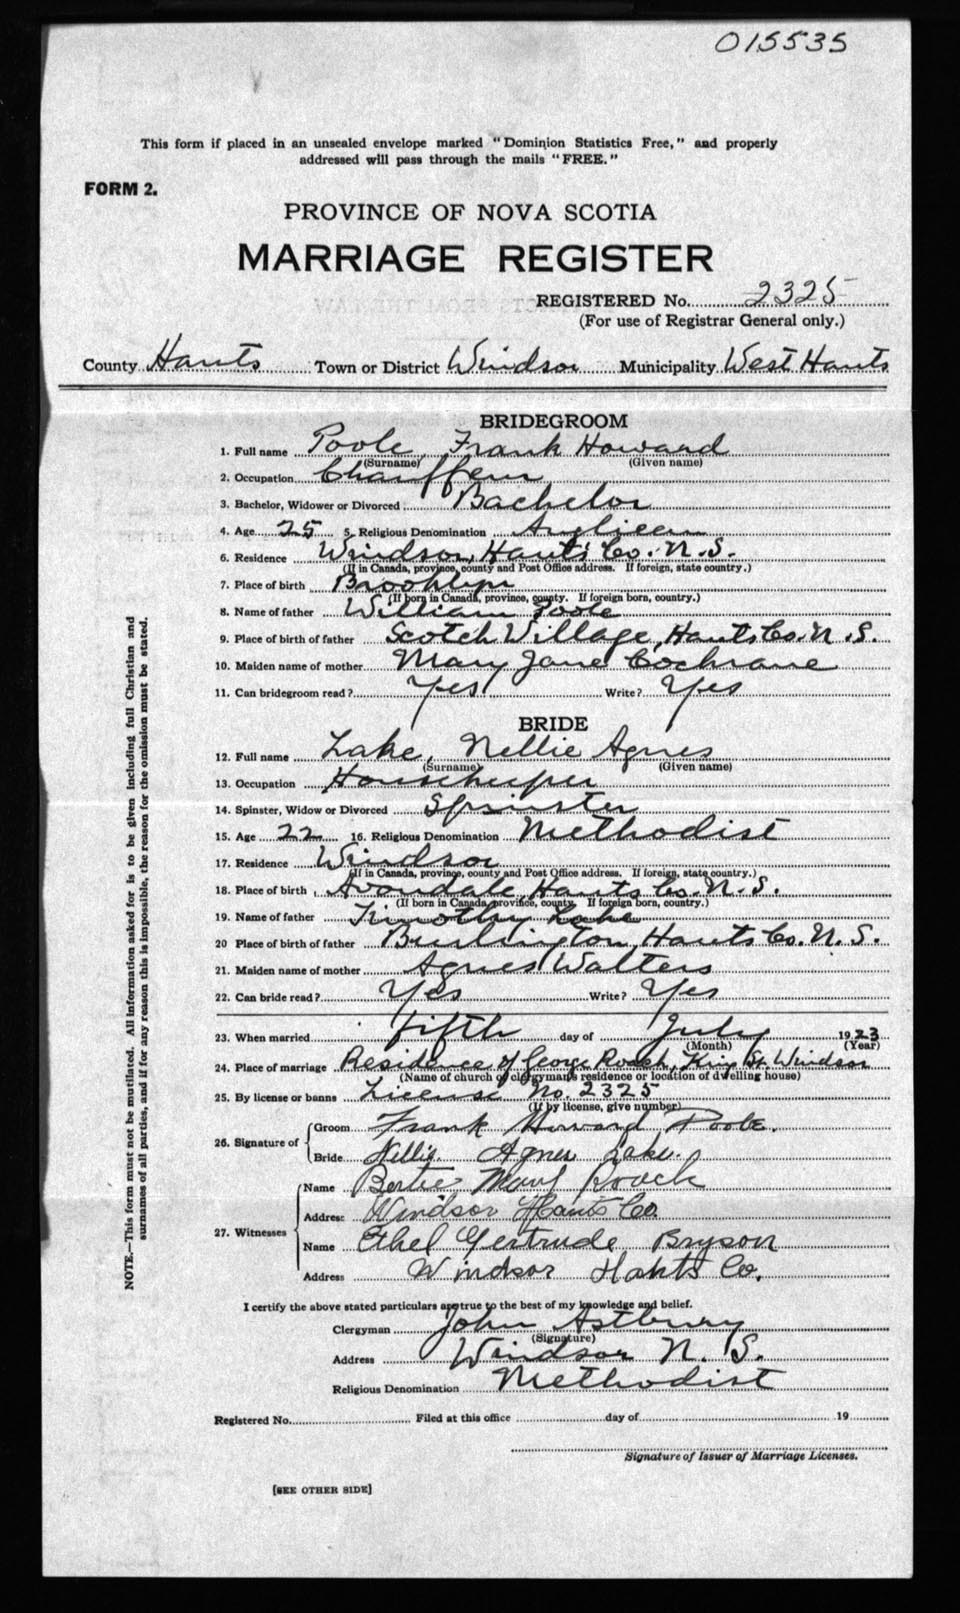 015535
This form if placed in an unsealed envelope marked "Dominion Statistics Free," and properly
addressed will pass through the mails "FREE."
FORM 2.
PROVINCE OF NOVA SCOTIA
MARRIAGE REGISTER
REGISTERED No. 2325
(For use of Registrar General only.)
County Hants Town or District Windsor Municipality West Hants
BRIDEGROOM
1. Full name Poole, Frank Howard
(Surname) (Given name)
2. Occupation Chauffeur
3. Bachelor, Widower or Divorced Bachelor
4. Age 25 5. Religious Denomination Anglican
6. Residence Windsor, Hants Co. N.S.
(If in Canada, province, county and Post Office address. If foreign, state country.)
7. Place of birth Brooklyn
(If born in Canada, province, county. If foreign born, country.)
8. Name of father William Poole
9. Place of birth of father Scotch Village, Hants Co. N.S.
10. Maiden name of mother Mary Jane Cochrane
11. Can bridegroom read? Yes Write? Yes
BRIDE
12. Full name Lake, Nellie Agnes
(Surname) (Given name)
13. Occupation Housekeeper
14. Spinster, Widow or Divorced Spinster
15. Age 22 16. Religious Denomination Methodist
17. Residence Windsor
(If in Canada, province, county and Post Office address. If foreign, state country.)
18. Place of birth Avondale, Hants Co. N.S.
(If born in Canada, province, county. If foreign born, country.)
19. Name of father Timothy Lake
20 Place of birth of father Burlington, Hants Co. N.S.
21. Maiden name of mother Agnes Walters
22. Can bride read? Yes Write? Yes
23. When married fifth day of July 1923
(Month) (Year)
24. Place of marriage Residence of George Roach, King St. Windsor
(Name of church of clergyman's residence or location of dwelling house)
25. By license or banns License No. 2325
(If by license, give number)
26. Signature of Groom Frank Howard Poole.
Bride Nellie Agnes Lake.
27. Witnesses Name Bertie Mary Roach
Address Windsor Hants Co.
Name Ethel Gertrude Bryson
Address Windsor Hants Co.
I certify the above stated particulars are true to the best of my knowledge and belief.
Clergyman John Astbury
(Signature)
Address Windsor N. S.
Religious Denomination Methodist
Registered No. Filed at this office day of 19
Signature of Issuer of Marriage Licenses.
[SEE OTHER SIDE]
NOTE.—This form must not be mutilated. All information asked for is to be given including full Christian and
surnames of all parties, and if for any reason this is impossible, the reason for the omission must be stated.